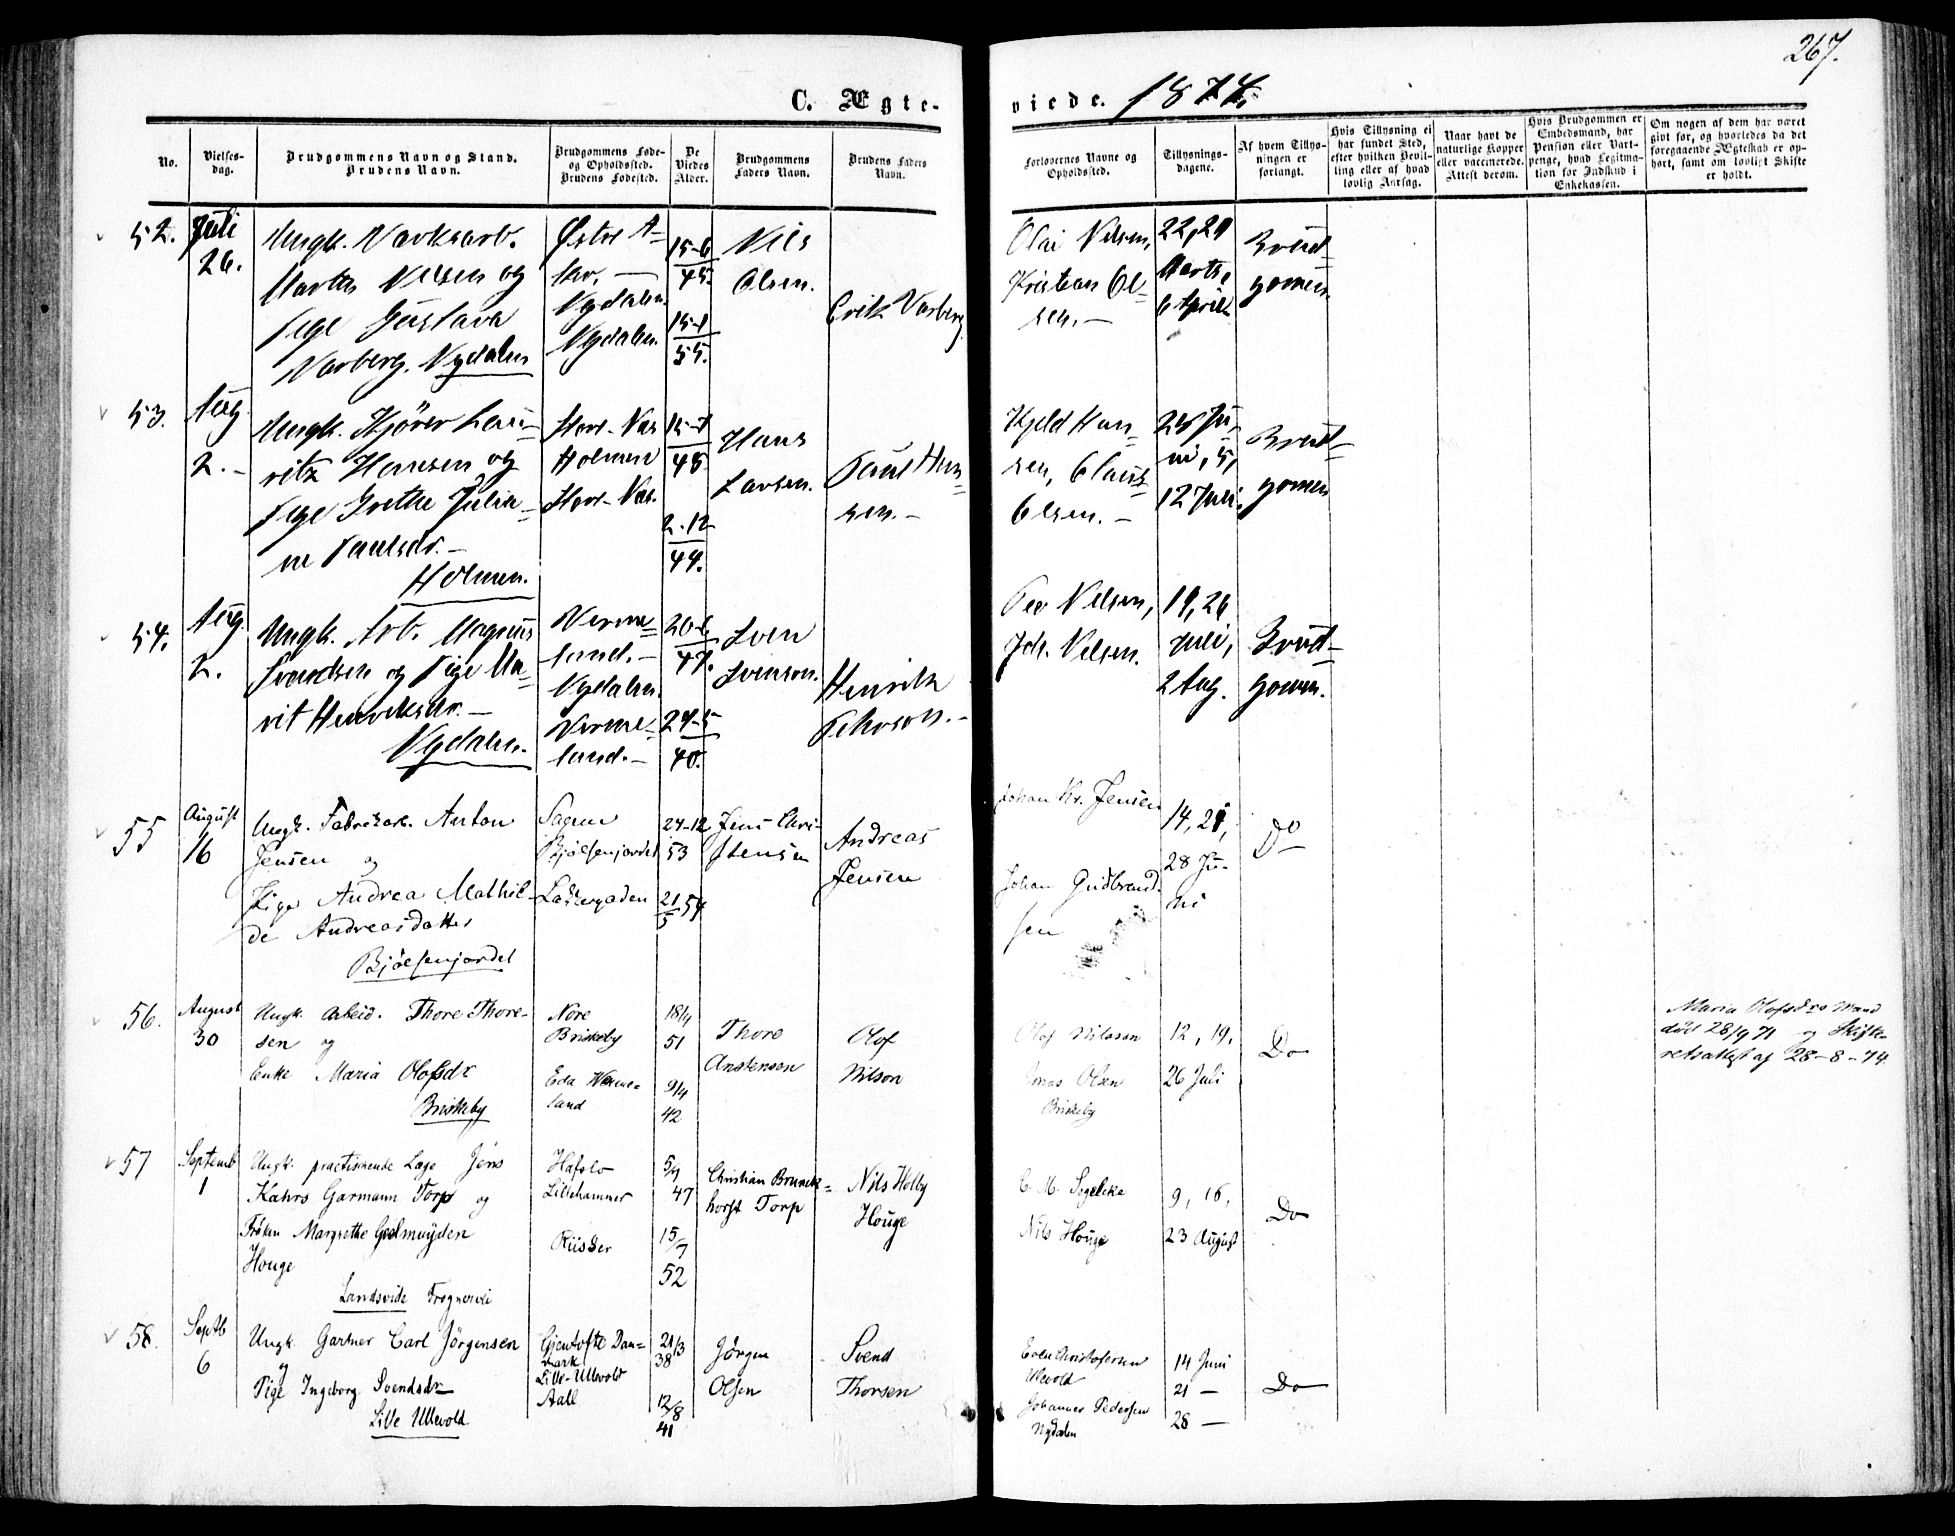 267.
C. Ægte-
viede. 1874.
No.
Vielses-
dag.
Brudgommens Navn og Stand.
Brudens Navn.
Brudgommens Føde-
og Opholdssted.
Brudens Fødested.
De
Viedes
Alder.
Brudgommens
Faders Navn.
Brudens Faders
Navn.
Forlovernes Navne og
Opholdssted.
Tillysnings-
dagene.
Af hvem Tillys-
ningen er
forlangt.
Hvis Tillysning ei
har fundet Sted,
efter hvilken Bevil-
ling eller af hvad
lovlig Aarsag.
Naar havt de
naturlige Kopper
eller vaccinerede.
Attest derom.
Hvis Brudgommen er
Embedsmand, har
Pension eller Vart-
penge, hvad Legitima-
tion for Indskud i
Enkekassen.
Om nogen af dem har været
gift før, og hvorledes da det
foregaaende Ægteskab er op-
hørt, samt om lovligt Skifte
er holdt.
52.
Juli
26.
Ungk. Værksarb.
Martin Nilsen og
Pige Gustava
Varberg. Nydalen
Østre A-
ker. —
Nydalen.
Nydalen.
15-6
45.
15-1
55.
Nils
Olsen.
Erik Varberg
Olai Nilsen,
Kristian Ol-
sen. —
22, 29
Marts,
6 April
Brud-
gomen.
53.
Aug
2. -
Ungk. Kjörer Lau-
ritz Hansen og
Pige Grethe Julia-
ne Paulsdr. —
Holmen.
Holmen
48
2-12
44.
Hans
Larsen.
Paul Han-
sen. -
Kjeld Han-
sen, Claus
Olsen. -
24 Ju-
ni, 5,
12 Juli.
Brud-
gomen
54.
Aug.
2.
Ungk. Arb. Magnus
Svendsen og Pige Ma-
rit Henriksdr. —
Nydalen.
Verme-
land. -
Nydalen.
Verme-
land. -
20-6
47.
24-5
40.
Sven
Svenson.
Henrik
Per Nilsen,
Joh. Nilsen.
19, 26
Juli,
2 Aug.
Brud-
gomen.
55
August
16
Ungk. Fabrikarb. Anton
Jensen og
Pige Andrea Mathil-
de Andreasdatter
Bjölsenjordet
Sagene
Bjölsenjordet
Lakkegaden
24-12
53
21
5 54
Jens Chri-
stensen
Andreas
Jensen
Johan Kr. Jensen
Johan Gudbrand-
sen
14, 21,
28 Ju-
ni
Do
56.
August
30
Ungk. Arbeid. Thore Thore-
sen og
Enke Maria Olofsdr
Briskeby
Nore
Briskeby
Eda Werme-
land
18/4
51
9/4
42
Thore
Anstensen
Olof
Nilson
Olof Nilsson
Jonas Olsen
Briskeby
12, 19,
26 Juli
Do
Maria Olofsdrs Mand
död 28/9 71 og Skifte-
retsattest af 28-8-74
57
Septemb
1
Ungk. practiserende Læge Jens
Kahrs Garmann Torp og
Fröken Margrethe Geelmuyden
Houge
Landsvide Frognervei
Hafslo
Lillehammer
Riisöer
5/7
47
15/7
52
Christian Brunck-
horst Torp
Nils Holby
Houge
C. M. Segelcke
Nils Houge
9, 16,
23 August
Do
58.
Septb
6
Ungk. Gartner Carl Jörgensen
og
Pige Ingeborg Svendsdr
Lille Ullevold
Gjentofte Dan-
mark
Lille-Ullevold
Aall
21/3
38
12/8
41
Jörgen
Olsen
Svend
Thorsen
Even Christofersen
Ullevold
Johannes Pedersen
Nydalen
14 Juni
21 —
28 —
Do